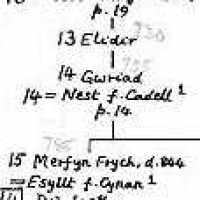 p.19
13 Elidir
14 Gwriad
14 = Nest f. Cadell 1
p.14
15 Merfyn Frych, d. 844
= Esyllt f. Cynan 1